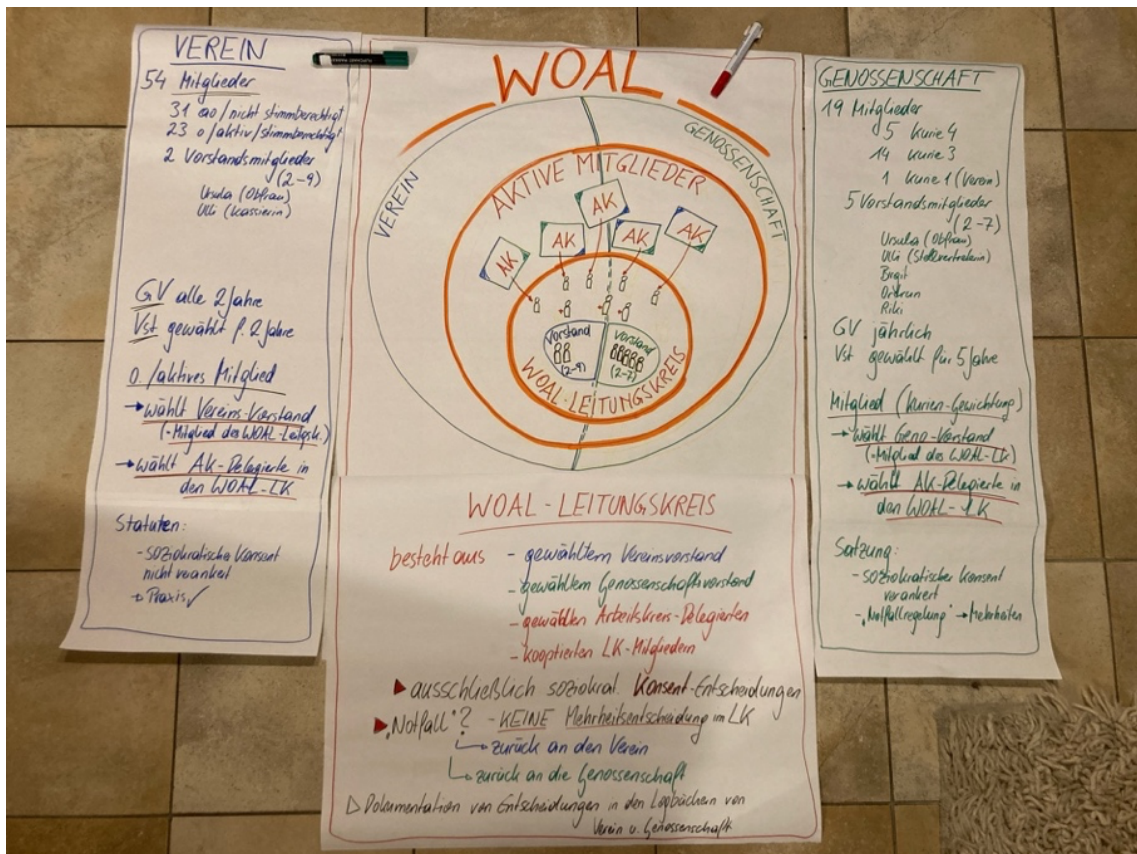 VEREIN
54 Mitglieder
31 ao/nicht stimmberechtigt
23 o/aktiv/stimmberechtigt
2 Vorstandsmitglieder
(2-9)
Ursula (Obfrau)
Ulli (Kassierin)
GV alle 2 Jahre
Vst gewählt f. 2 Jahre
o./aktives Mitglied
→ wählt Vereins-Vorstand
(=Mitglied des WOAL-Leitgsk.)
→ wählt AK-Delegierte in
den WOAL-LK
Statuten:
- soziokratischer Konsent
nicht verankert
→ Praxis ✓
WOAL
VEREIN
GENOSSENSCHAFT
AKTIVE MITGLIEDER
AK
AK
AK
AK
AK
Vorstand
(2-9)
Vorstand
(2-7)
WOAL-LEITUNGSKREIS
WOAL-LEITUNGSKREIS
besteht aus - gewähltem Vereinsvorstand
- gewähltem Genossenschaftsvorstand
- gewählten Arbeitskreis-Delegierten
- kooptierten LK-Mitgliedern
▶ ausschließlich soziokrat. Konsent-Entscheidungen
▶ „Notfall"? - KEINE Mehrheitsentscheidung im LK
↳ zurück an den Verein
↳ zurück an die Genossenschaft
▷ Dokumentation von Entscheidungen in den Logbüchern von
Verein u. Genossenschaft
GENOSSENSCHAFT
19 Mitglieder
5 Kurie 4
14 Kurie 3
1 Kurie 1 (Verein)
5 Vorstandsmitglieder
(2-7)
Ursula (Obfrau)
Ulli (Stellvertreterin)
Birgit
Ortrun
Riki
GV jährlich
Vst gewählt für 5 Jahre
Mitglied (Kurien-Gewichtung)
→ wählt Geno-Vorstand
(=Mitglied des WOAL-LK)
→ wählt AK-Delegierte in
den WOAL-LK
Satzung:
- soziokratischer Konsent
verankert
- „Notfallregelung" → Mehrheiten